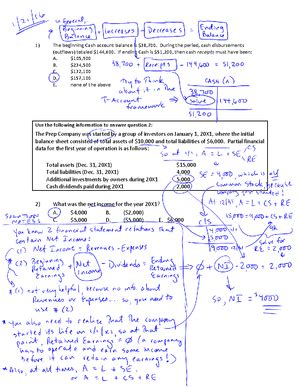 1/21/16
* In General,
Beginning Balance + Increases - Decreases = Ending Balance
1) The beginning Cash account balance is $38,700. During the period, cash disbursements
(outflows) totaled $144,600. If ending Cash is $51,200, then cash receipts must have been:
A. $105,900
B. $234,500
C. $132,100
D. $157,100
E. none of the above
38,700 + Receipts - 144,600 = 51,200
Try to Think about it in the T-Account framework
CASH (A)
38,700
solve 144,600
51,200
Use the following information to answer question 2:
The Prep Company was started by a group of investors on January 1, 20X1, where the initial
balance sheet consisted of total assets of $10,000 and total liabilities of $6,000. Partial financial
data for the first year of operation is as follows:
So at 1/1, A = L + CS + RE
Total assets (Dec. 31, 20X1) $15,000
Total liabilities (Dec. 31, 20X1) 4,000
Additional investments by owners during 20X1 5,000
Cash dividends paid during 20X1 2,000
2) What was the net income for the year 20X1?
A. $4,000 B. ($2,000) C. $2,000
D. ($4,000) E. $6,000
SOLUTION NOTES
You know 2 financial statement relations that
contain Net Income:
(1) Net Income = Revenues - Expenses
(2) Beginning Retained Earnings + Net Income - Dividends = Ending Retained Earnings
0 + NI - 2000 = 2,000
So, NI = 4000
* (1) not very helpful because no info about
Revenues or Expenses... so, you need
to use (2)
* You also need to realize that the company
started its life on 1/1/X1, so at that
point, Retained Earnings = 0 (a company
has to operate and earn some income
before it can retain any earnings!)
* Also, at all times, A = L + SE
or A = L + CS + RE